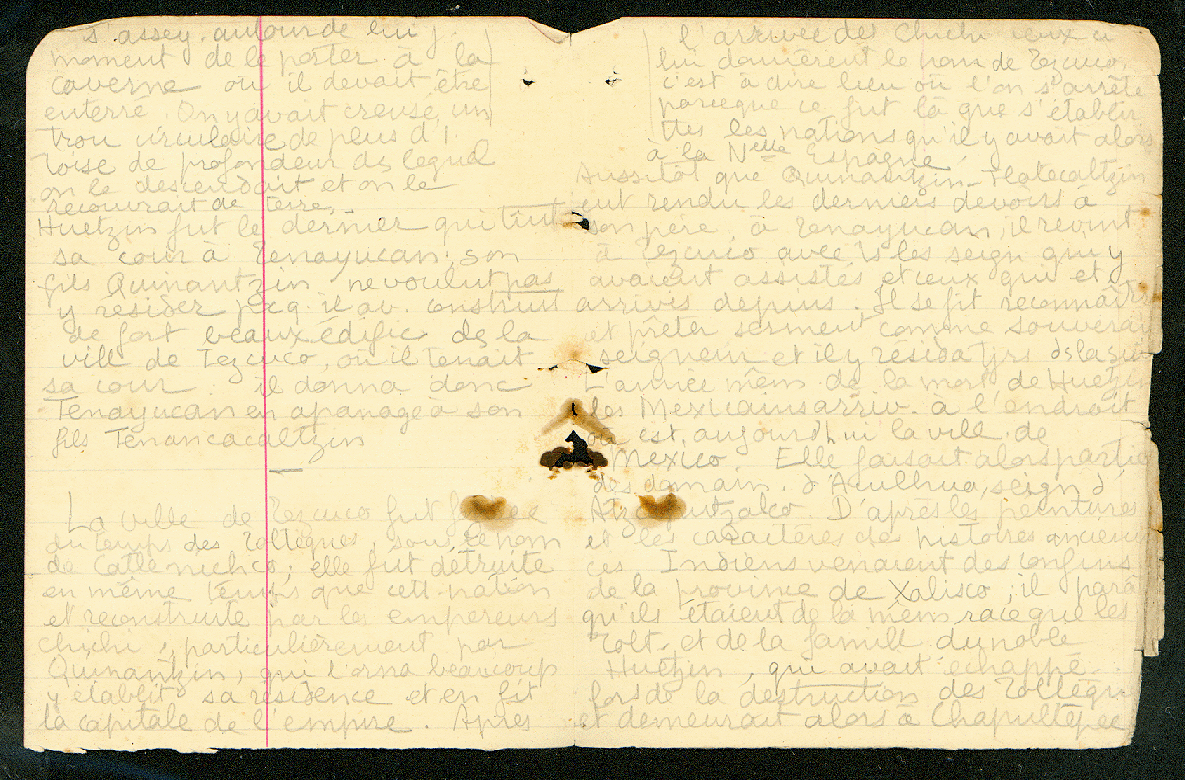 s'assey. autour de lui j.
moment de le porter à la
caverne où il devait être
enterré. On y avait creusé un
trou circulaire de plus d'1
toise de profondeur ds lequel
on le descendait et on le
recouvrait de terre.
Huetzin fut le dernier qui tint
sa cour à Tenayucan. son
fils Quinantzin ne voulut pas
y résider pcq il av. construit
de fort beaux édific ds la
vill de Tezcuco où il tenait
sa cour il donna donc
Tenayucan en apanage à son
fils Tenancacaltzin
La ville de Tezcuco fut
du temps des Toltèques, sous le nom
de Catlenichco; elle fut détruite
en même temps que cett nation
et reconstruite par les empereurs
chichi, particulièrement par
Quinantzin, qui l'orna beaucoup
y établit sa résidence et en fit
la capitale de l'empire. Après
l'arrivée des Chichi ceux ci
lui donnèrent le nom de Tezcuco,
c'est à dire lieu où l'on s'arrête
parceque ce fut là que s'établir
ttes les nations qu'il y avait alors
à la Nelle Espagne
Aussitôt que Quinantzin-Tlatecaltzin
eut rendu les derniers devoirs à
son père, à Tenayucan, il revint
à Tezcuco avec ts les seign qui y
avaient assistés et ceux qui et
arrivés depuis. Il se fit reconnaître
et prêter serment comme souverain
seigneur et il y résida ds la
L'année mêm de la mort de Huetzin
les Mexicains arriv. à l'endroit
où est aujourd'hui la ville de
Mexico. Elle faisait alors partie
des domain. d'Aculhua, seign d'
Atzcaputzalco D'après les peintures
et les caractères des histoires ancien
ces Indiens venaient des confins
de la province de Xalisco, il para
qu'ils étaient de la mêm race que les
Tolt, et de la famill du noble
Huetzin, qui avait échappé
lors de la destruction des Toltèqu
et demeurait alors à Chapultepec